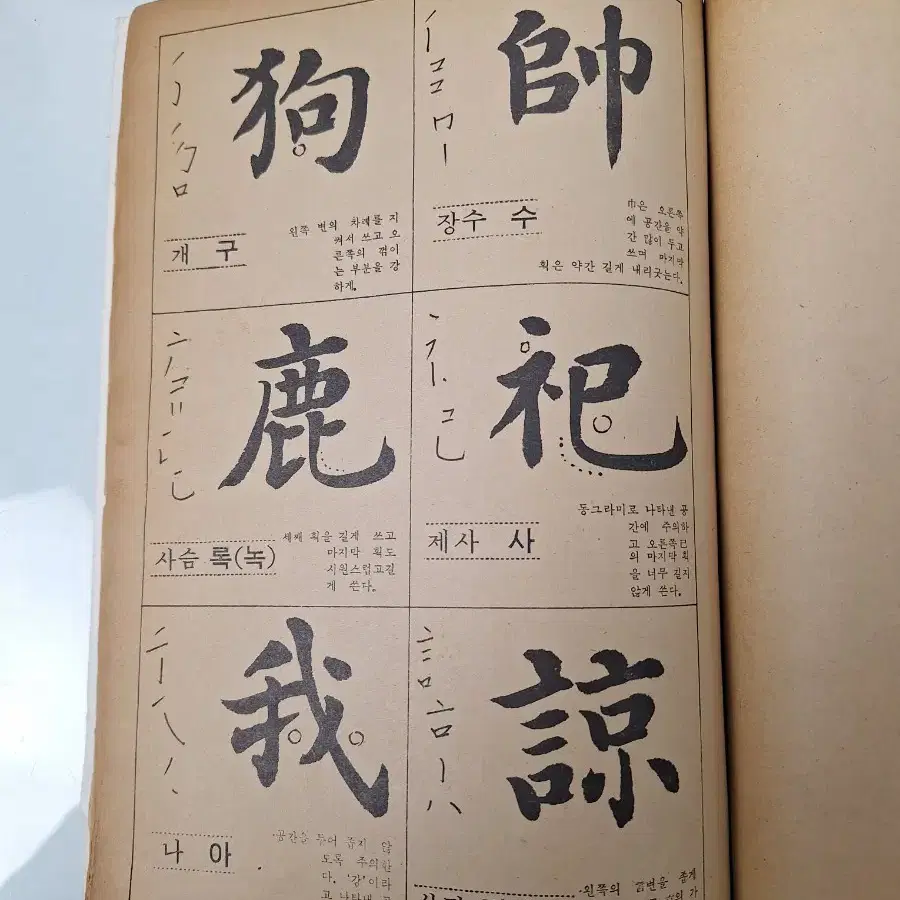 帥
장수 수
巾은 오른쪽
에 공간을 약
간 많이 두고
쓰며 마지막
획은 약간 길게 내리긋는다.
狗
개 구
왼쪽 변의 차례를 지
켜서 쓰고 오
른쪽의 꺾이
는 부분을 강
하게.
祀
제사 사
동그라미로 나타낸 공
간에 주의하
고 오른쪽 巳
의 마지막 획
을 너무 길지
않게 쓴다.
鹿
사슴 록(녹)
세째 획을 길게 쓰고
마지막 획도
시원스럽고길
게 쓴다.
諒
·왼쪽의 변을 좁게
我
나 아
·공간을 두어 좁지 않
도록 주의한
다. '강'이라
고 나타낸